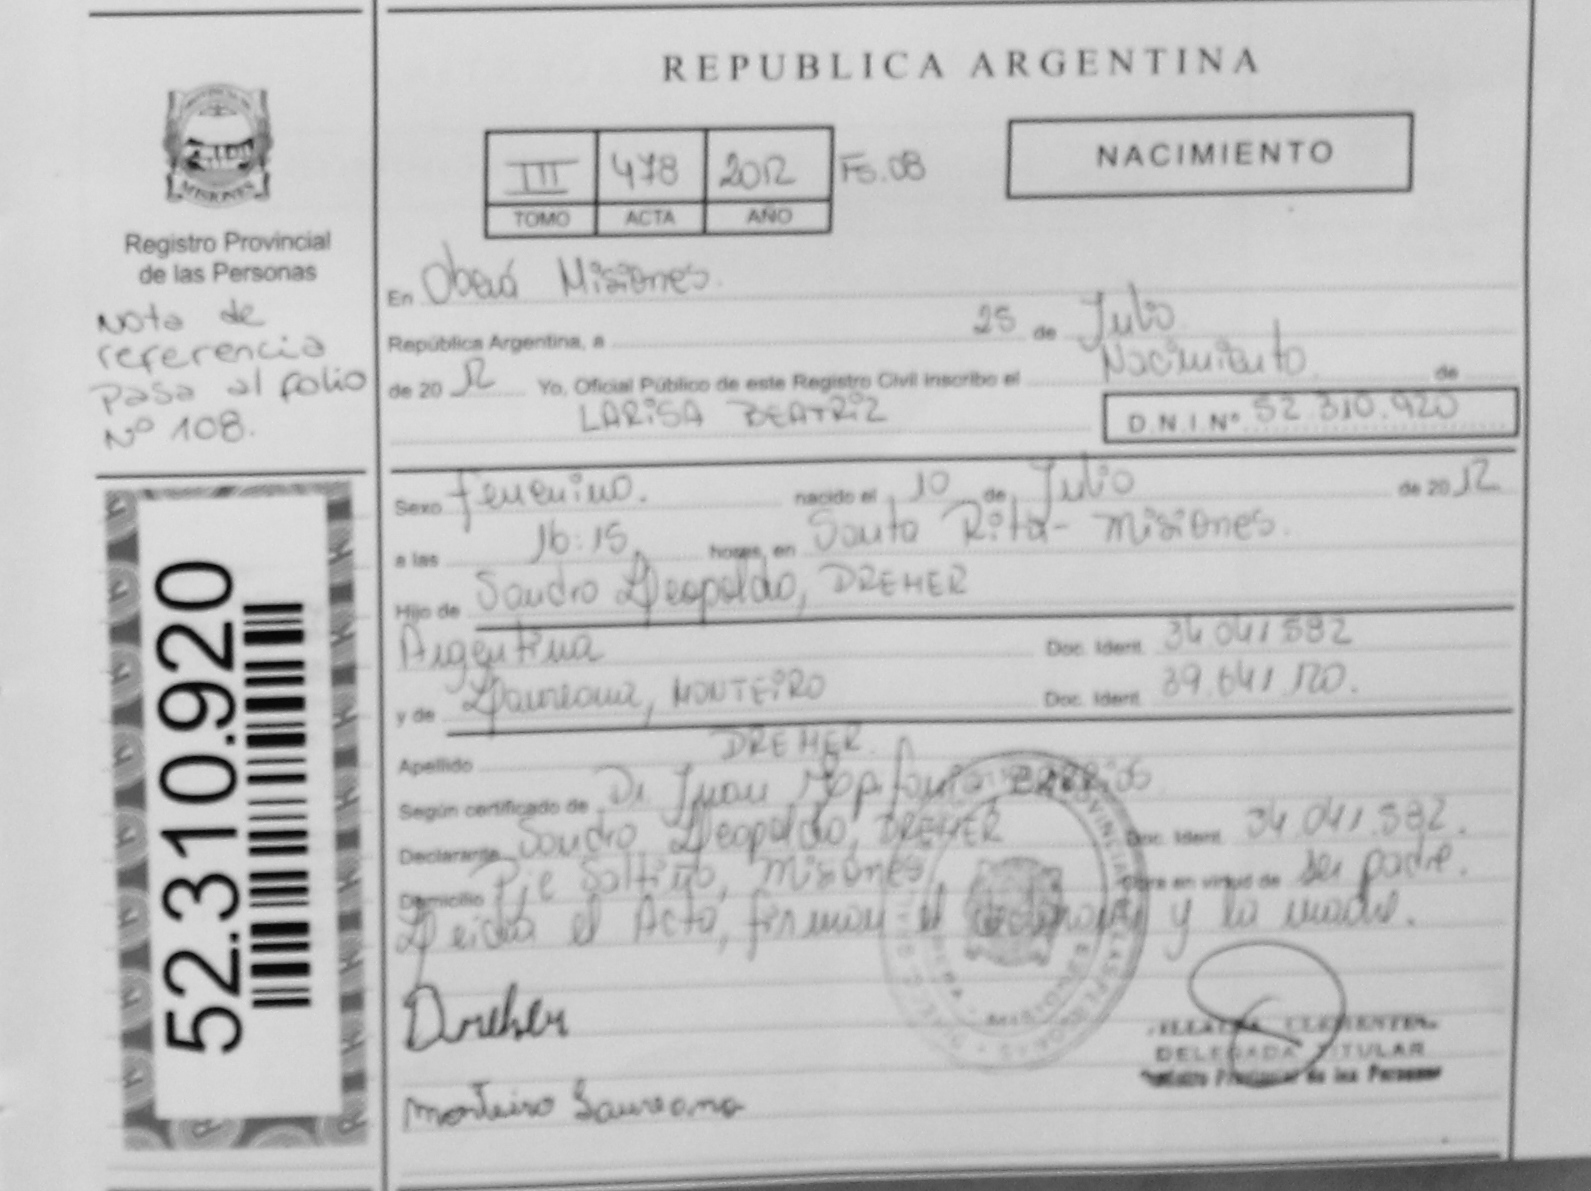 REPUBLICA ARGENTINA
MISIONES
Registro Provincial
de las Personas
Nota de
referencia
pasa al folio
Nº 108.
52.310.920
III 478 2012 Fs.08
TOMO ACTA AÑO
NACIMIENTO
En Oberá Misiones.
República Argentina, a 25 de Julio
de 2012 Yo, Oficial Público de este Registro Civil inscribo el Nacimiento de
LARISA BEATRIZ D.N.I.Nº 52.310.920
Sexo femenino. nacido el 10 de Julio de 2012
a las 16:15 horas, en Santa Rita - Misiones.
Hijo de Sandro Leopoldo, DREHER
Argentina Doc. Ident. 34.041.582
y de Laureana, MONTEIRO Doc. Ident. 39.641.120.
Apellido DREHER.
Según certificado de Dr Juan
Declarante Sandro Leopoldo, DREHER Doc. Ident. 34.041.582.
Domicilio Pje Saltito, Misiones Obra en virtud de ser padre.
Leída el Acta, firman el declarante y la madre.
Dreher
DELEGADA TITULAR
Registro Provincial de las Personas
Monteiro Laureana